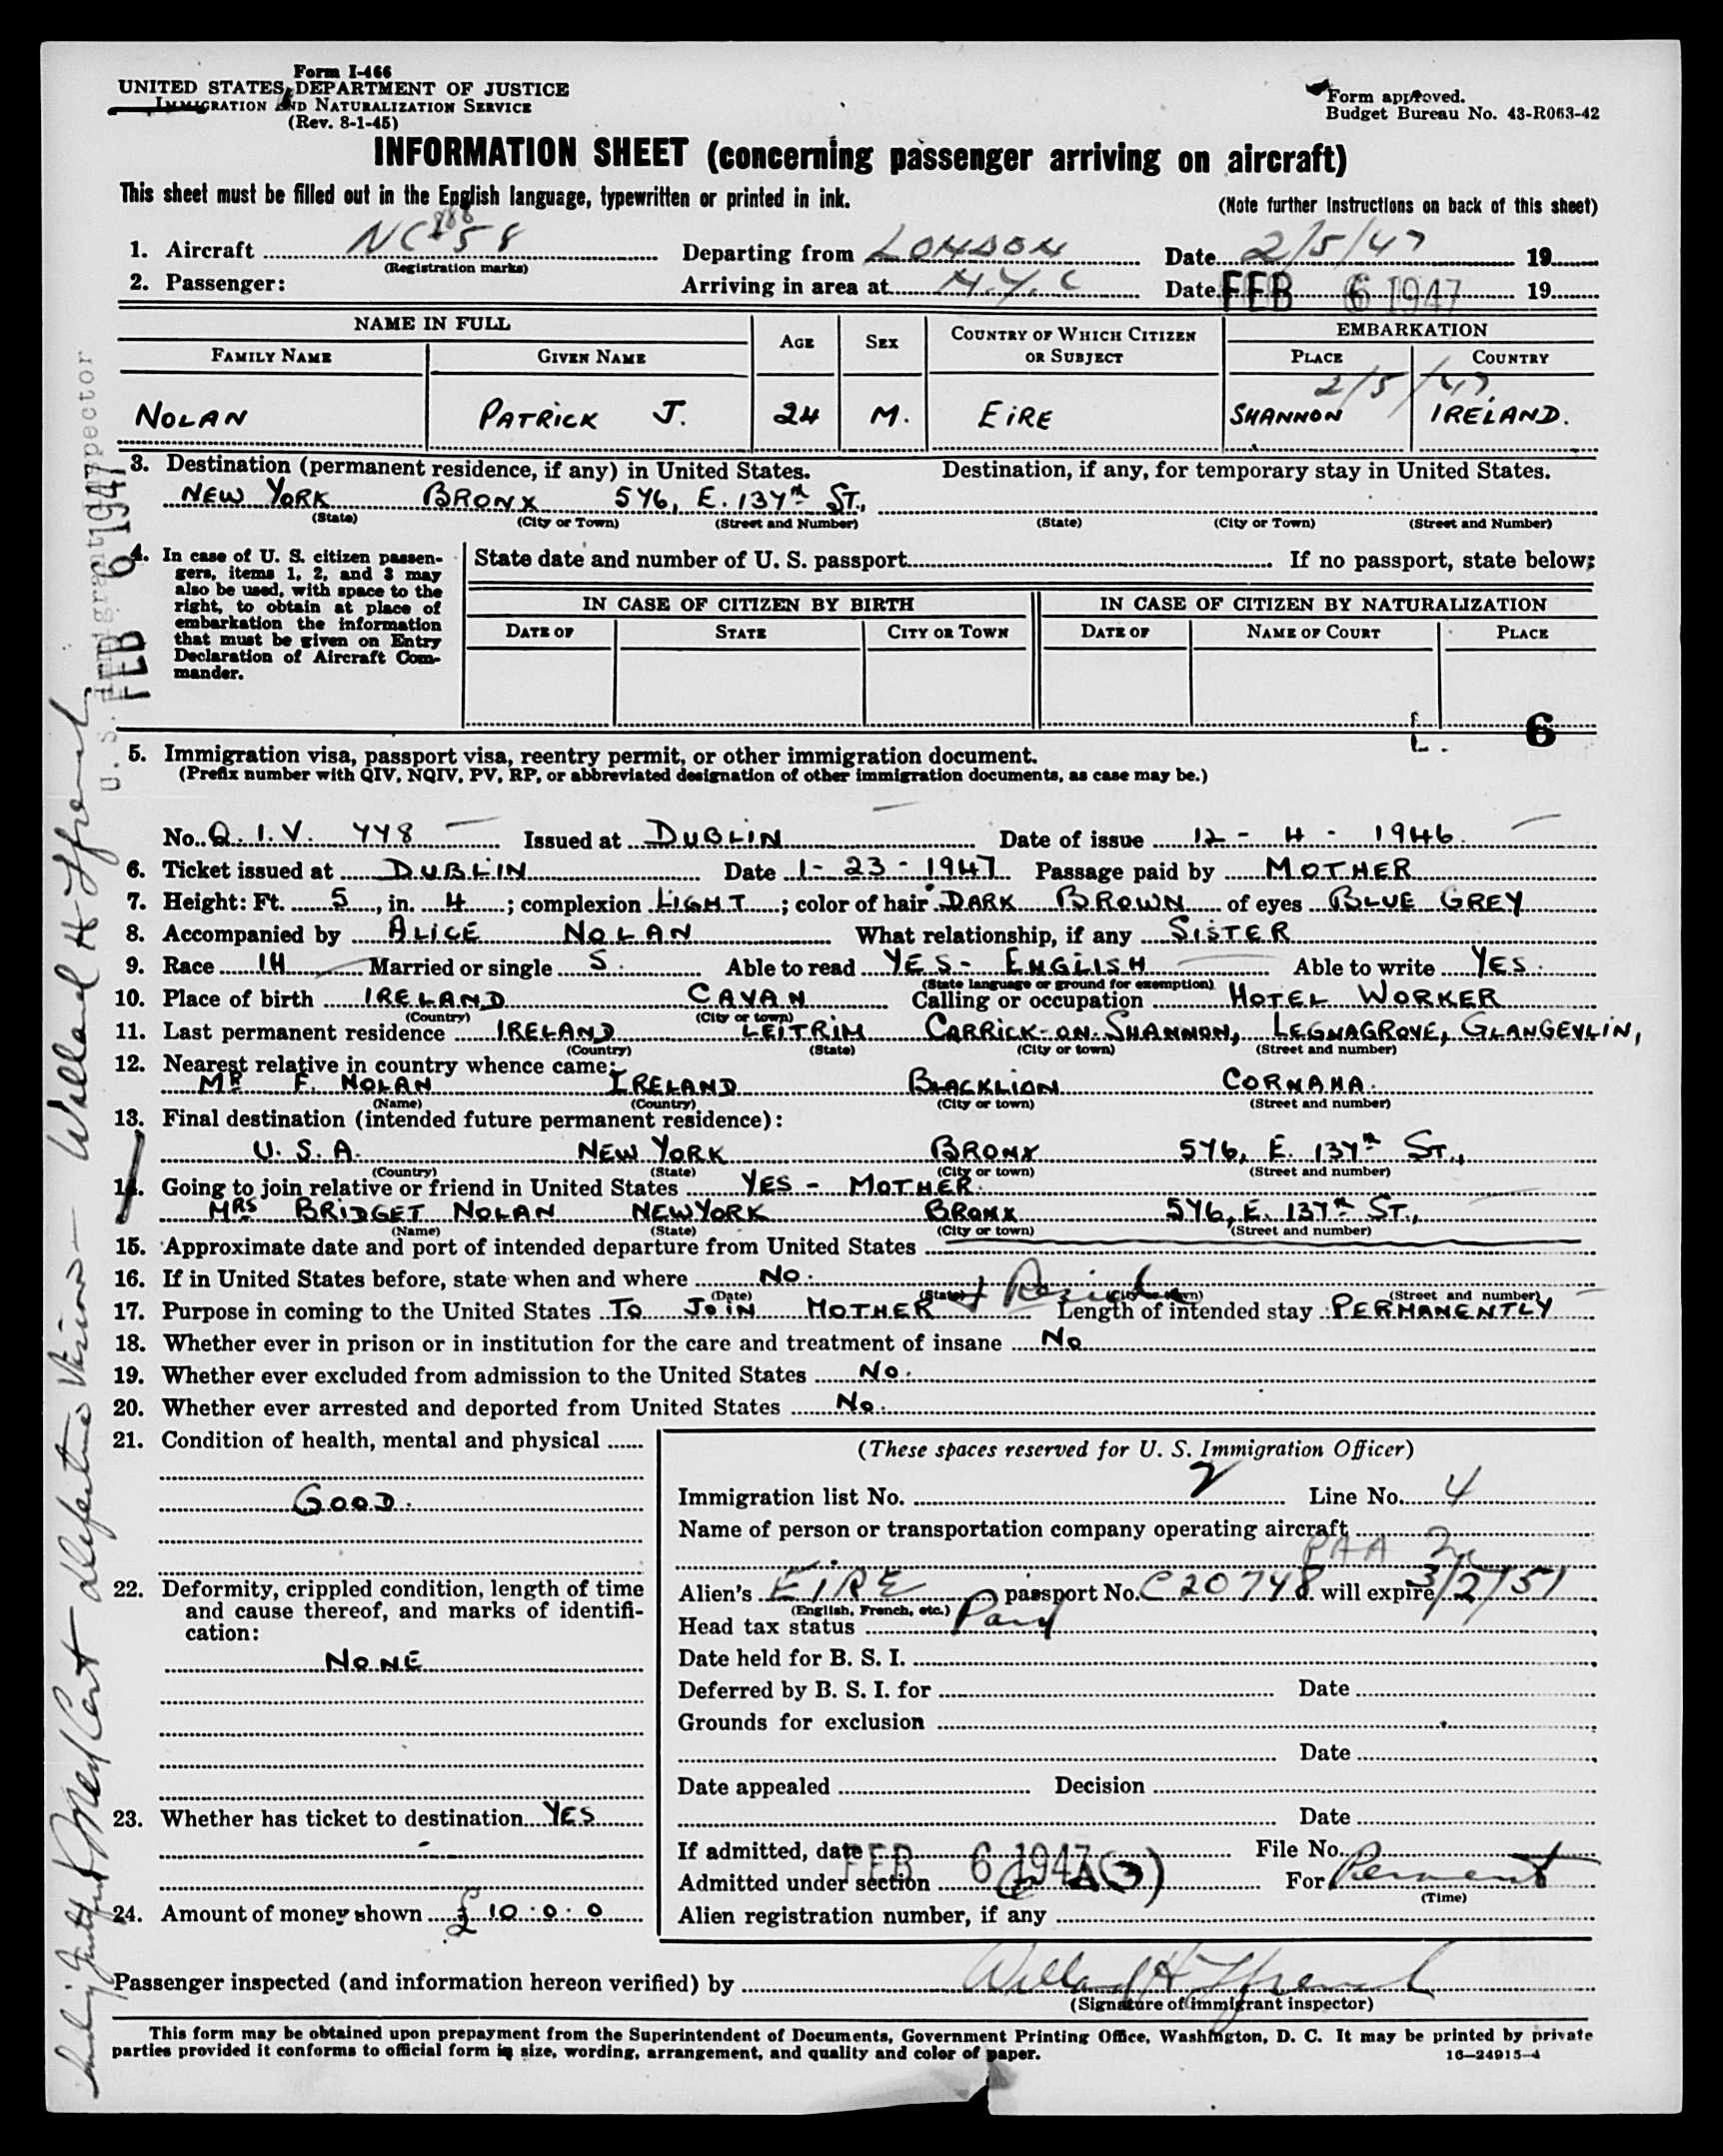 Form I-466
UNITED STATES DEPARTMENT OF JUSTICE
IMMIGRATION AND NATURALIZATION SERVICE
(Rev. 8-1-45)
Form approved.
Budget Bureau No. 43-R063-42
INFORMATION SHEET (concerning passenger arriving on aircraft)
This sheet must be filled out in the English language, typewritten or printed in ink.
(Note further instructions on back of this sheet)
1. Aircraft NC 888 58 Departing from LONDON Date 2/5/47 19
(Registration marks)
2. Passenger: Arriving in area at N.Y.C Date FEB 6 1947 19
NAME IN FULL AGE SEX COUNTRY OF WHICH CITIZEN OR SUBJECT EMBARKATION
FAMILY NAME GIVEN NAME PLACE COUNTRY
2/5/47
NOLAN PATRICK J. 24 M. EIRE SHANNON IRELAND.
3. Destination (permanent residence, if any) in United States. Destination, if any, for temporary stay in United States.
NEW YORK BRONX 576, E. 137TH ST.,
(State) (City or Town) (Street and Number) (State) (City or Town) (Street and Number)
4. In case of U. S. citizen passen-
gers, items 1, 2, and 3 may
also be used, with space to the
right, to obtain at place of
embarkation the information
that must be given on Entry
Declaration of Aircraft Com-
mander.
State date and number of U. S. passport If no passport, state below:
IN CASE OF CITIZEN BY BIRTH IN CASE OF CITIZEN BY NATURALIZATION
DATE OF STATE CITY OR TOWN DATE OF NAME OF COURT PLACE
6
5. Immigration visa, passport visa, reentry permit, or other immigration document.
(Prefix number with QIV, NQIV, PV, RP, or abbreviated designation of other immigration documents, as case may be.)
No. Q.I.V. 778 Issued at DUBLIN Date of issue 12 - 4 - 1946.
6. Ticket issued at DUBLIN Date 1- 23 - 1947 Passage paid by MOTHER
7. Height: Ft. 5, in. 4; complexion LIGHT; color of hair DARK BROWN of eyes BLUE GREY
8. Accompanied by ALICE NOLAN What relationship, if any SISTER
9. Race IH Married or single S. Able to read YES - ENGLISH Able to write YES.
(State language or ground for exemption)
10. Place of birth IRELAND CAVAN Calling or occupation HOTEL WORKER
(Country) (City or town)
11. Last permanent residence IRELAND LEITRIM CARRICK-ON-SHANNON, LEGNAGROVE, GLANGEVLIN,
(Country) (State) (City or town) (Street and number)
12. Nearest relative in country whence came:
MR F. NOLAN IRELAND BLACKLION CORNAHA.
(Name) (Country) (City or town) (Street and number)
13. Final destination (intended future permanent residence):
U.S.A. NEW YORK BRONX 576, E. 137TH ST.,
(Country) (State) (City or town) (Street and number)
14. Going to join relative or friend in United States YES - MOTHER.
MRS BRIDGET NOLAN NEW YORK BRONX 576, E. 137TH ST.,
(Name) (State) (City or town) (Street and number)
15. Approximate date and port of intended departure from United States
16. If in United States before, state when and where NO.
(Date) (State) (City or town) (Street and number)
17. Purpose in coming to the United States TO JOIN MOTHER + Reside Length of intended stay PERMANENTLY
18. Whether ever in prison or in institution for the care and treatment of insane NO
19. Whether ever excluded from admission to the United States NO.
20. Whether ever arrested and deported from United States NO.
21. Condition of health, mental and physical
GOOD.
22. Deformity, crippled condition, length of time
and cause thereof, and marks of identifi-
cation:
NONE
23. Whether has ticket to destination YES
24. Amount of money shown £ 10:0:0
(These spaces reserved for U. S. Immigration Officer)
Immigration list No. 2 Line No. 4
Name of person or transportation company operating aircraft
PAA
Alien's EIRE passport No. C20748 will expire 3/2/51
(English, French, etc.)
Head tax status Paid
Date held for B. S. I.
Deferred by B. S. I. for Date
Grounds for exclusion
Date
Date appealed Decision
Date
If admitted, date FEB 6 1947 File No.
Admitted under section (3) For Permanent
(Time)
Alien registration number, if any
Passenger inspected (and information hereon verified) by Willard H Ffrench
(Signature of immigrant inspector)
This form may be obtained upon prepayment from the Superintendent of Documents, Government Printing Office, Washington, D. C. It may be printed by private
parties provided it conforms to official form in size, wording, arrangement, and quality and color of paper.
16—24915-4
U. S. Immigrant Inspector
FEB 6 1947
Med Cert defective Vision - Willard H Ffrench